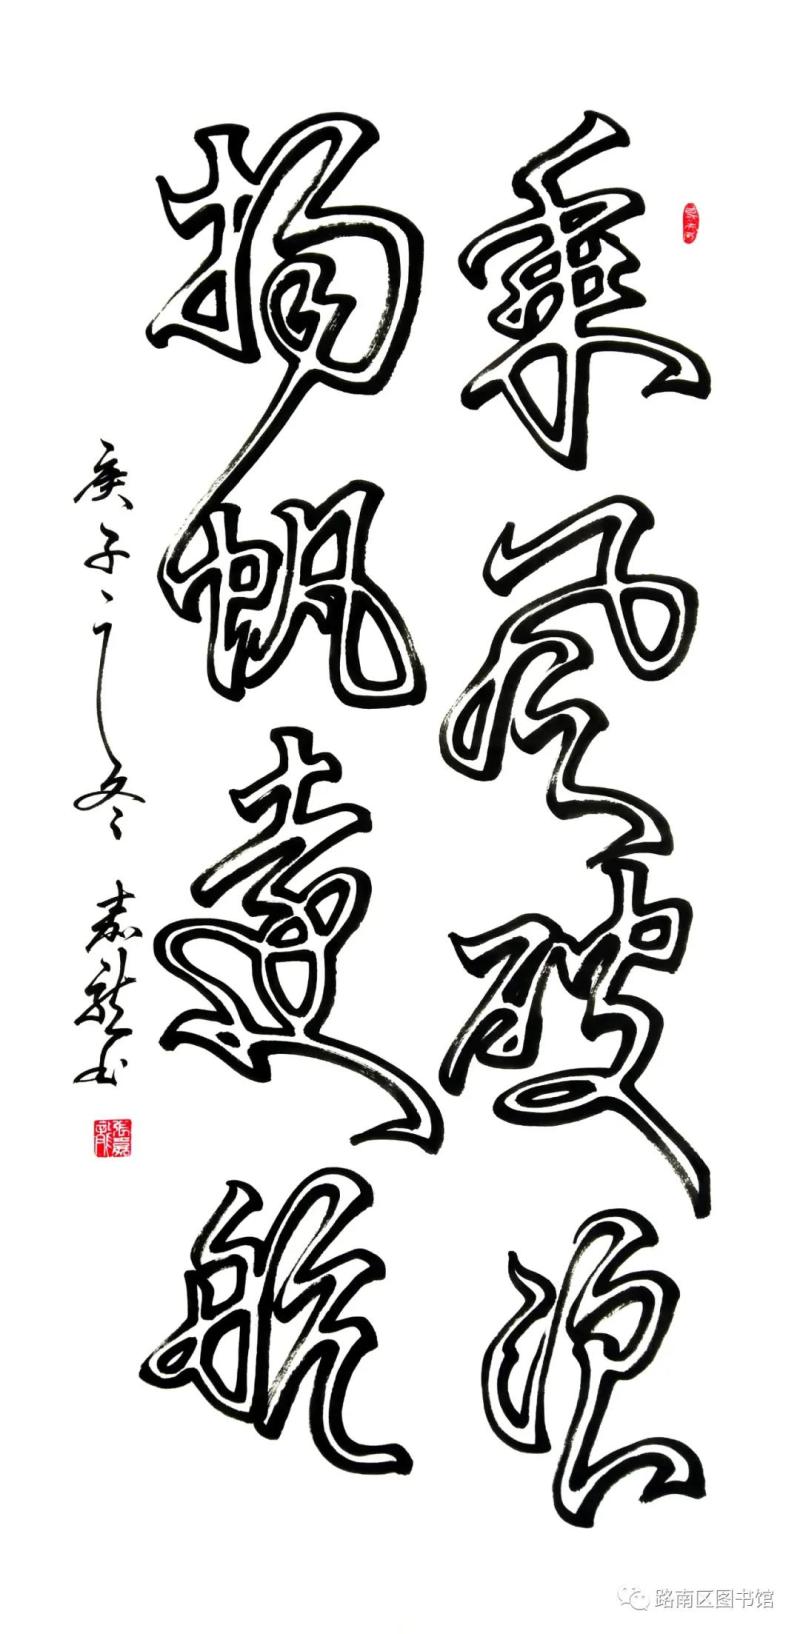 乘风破浪
扬帆远航
庚子之冬 嘉龙书
张嘉龙
路南区图书馆